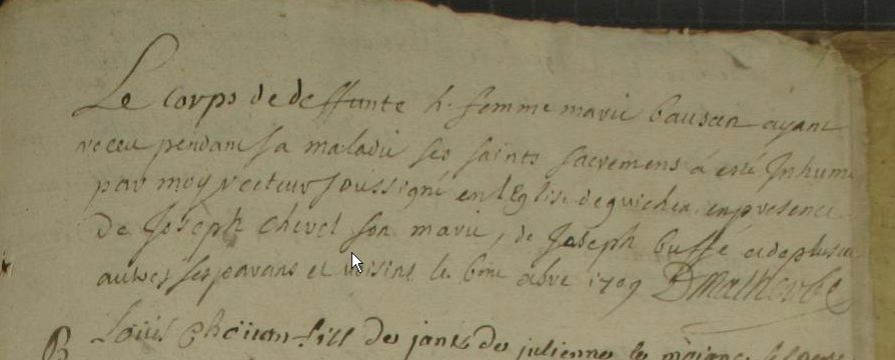 Le corps de deffunte h. femme marie bausan ayant
receu pendant sa maladie ses saints sacremens á esté Inhumé
par moy recteur soussigné en lEglise de guichen en presence
de Joseph chevel son marie, de Joseph buffé et de plusieu
autres ses parans et voisins le 1709 D malherbe
Louis fill des jants de julienne le